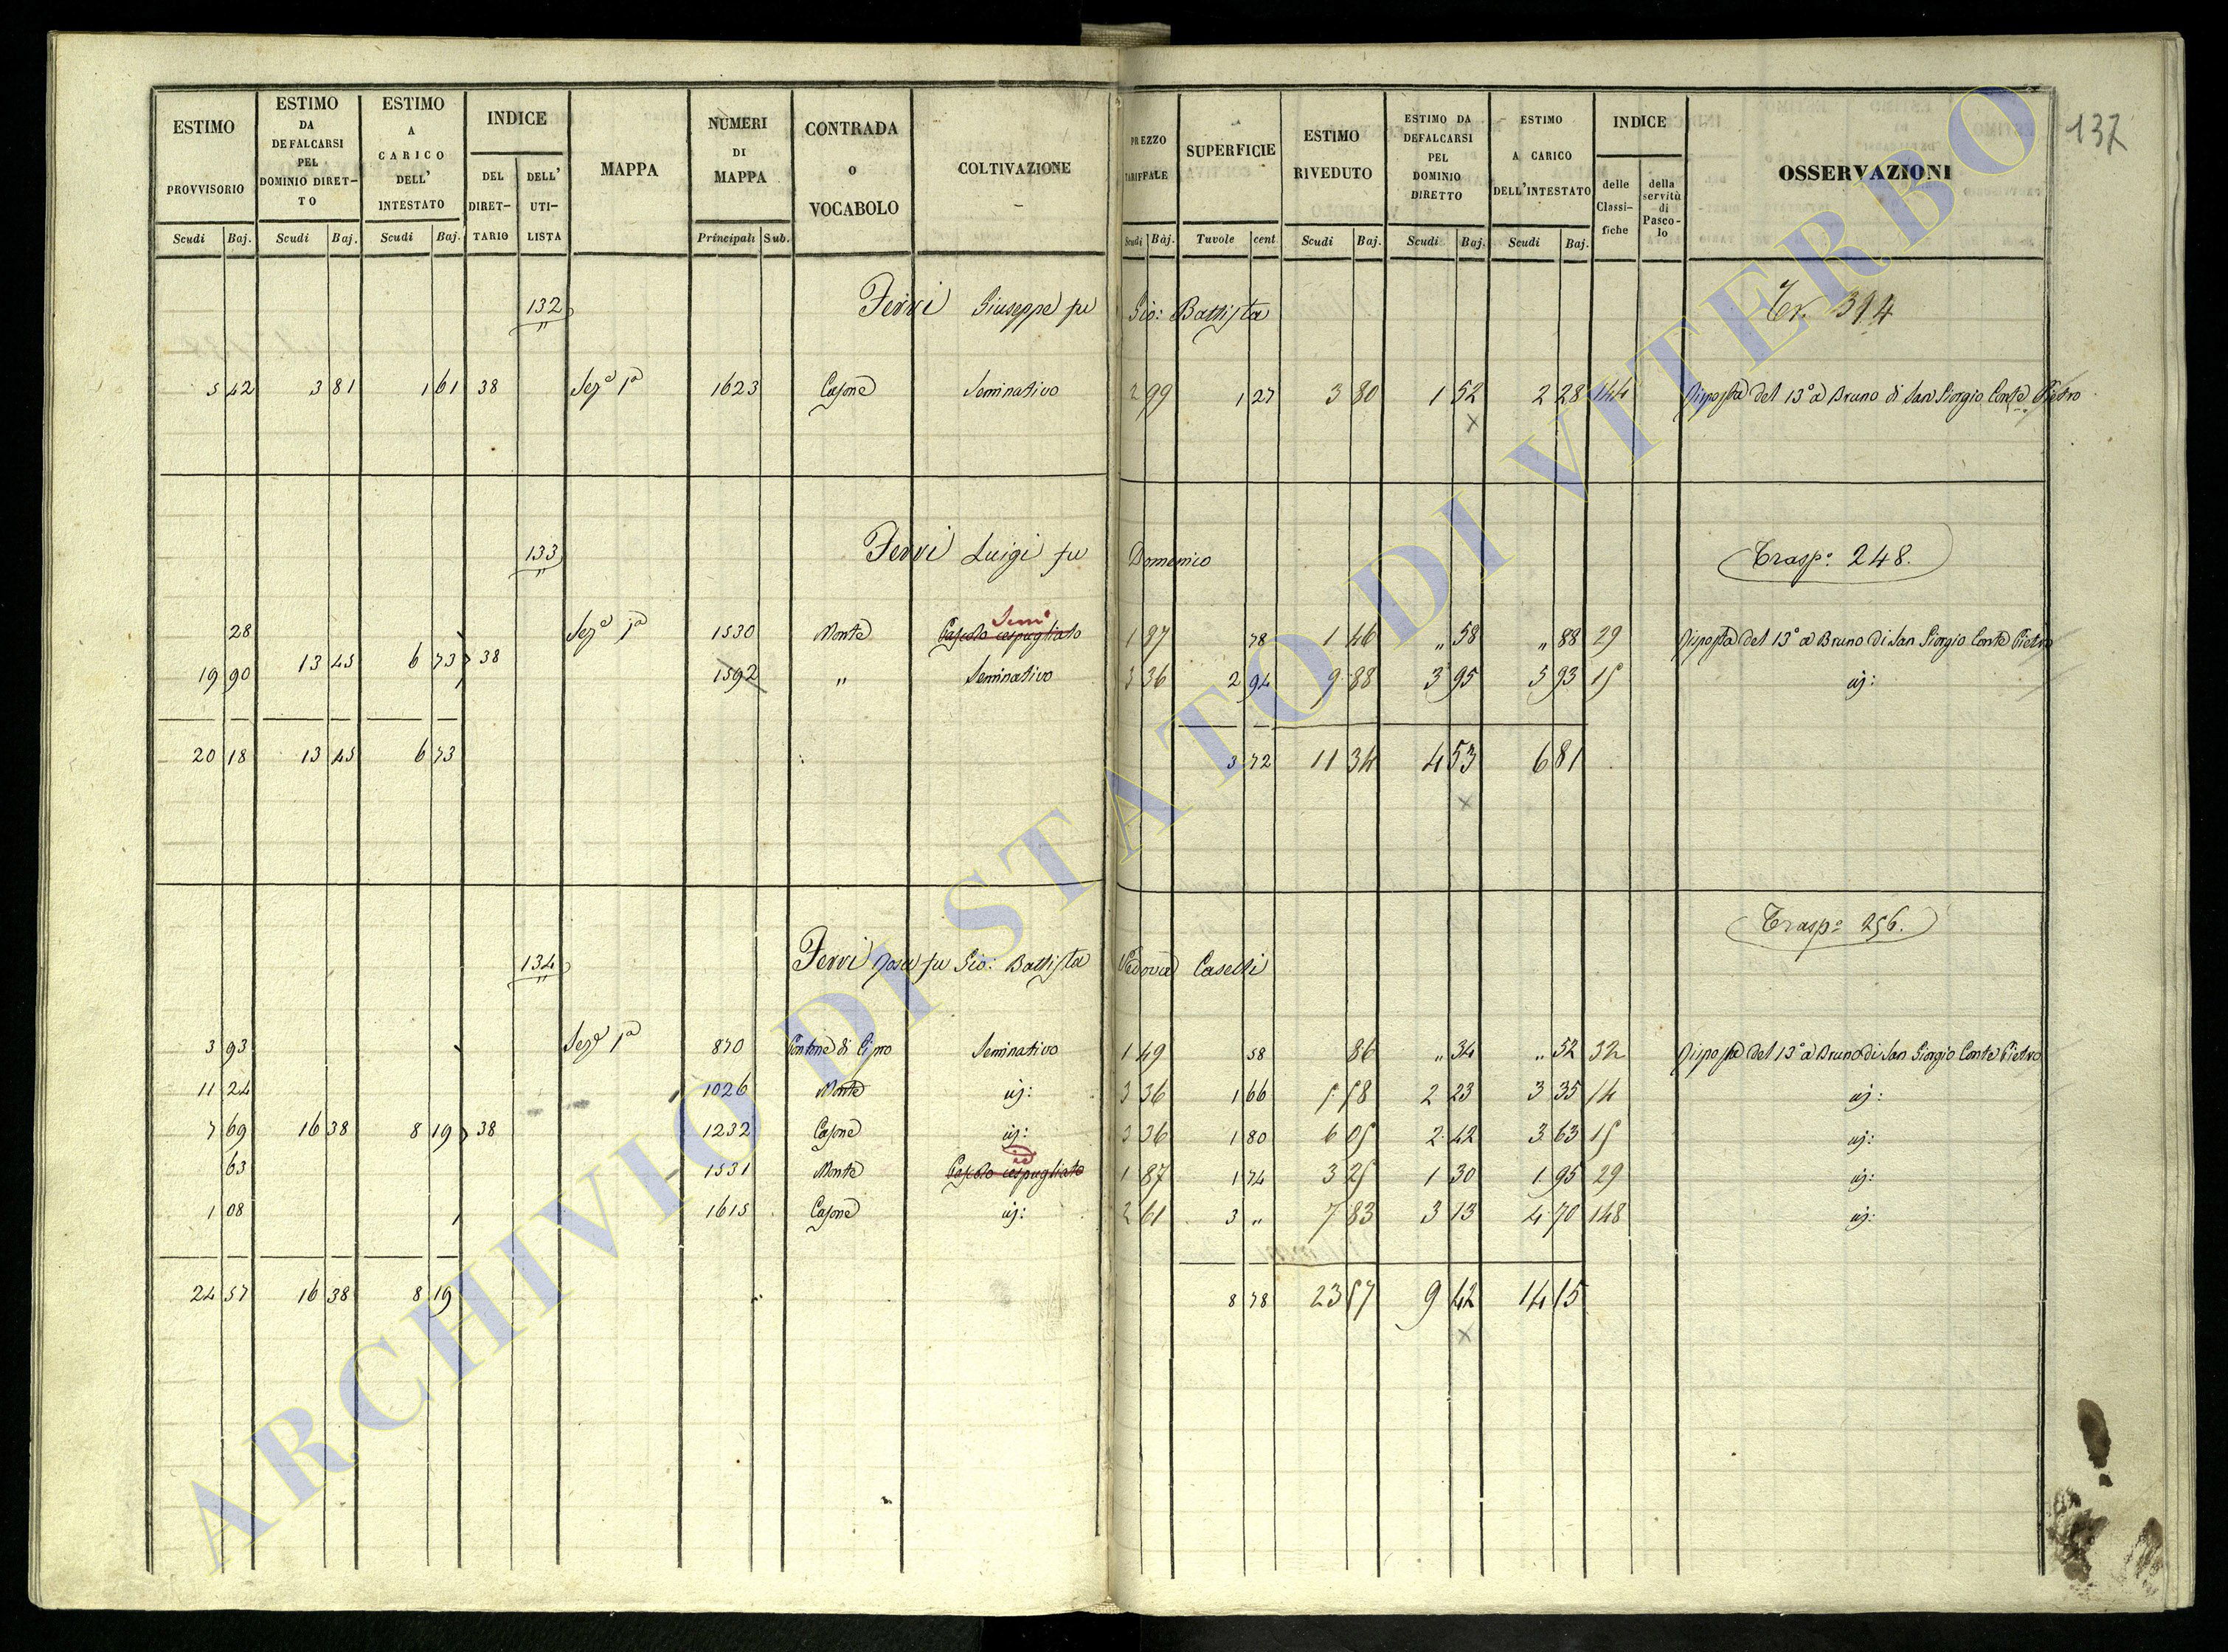 137
ESTIMO PROVVISORIO
ESTIMO DA DEFALCARSI PEL DOMINIO DIRETTO
ESTIMO A CARICO DELL' INTESTATO
INDICE
DEL DIRET-TARIO
DELL' UTI-LISTA
MAPPA
NUMERI DI MAPPA
CONTRADA o VOCABOLO
COLTIVAZIONE
PREZZO TARIFFALE
SUPERFICIE
ESTIMO RIVEDUTO
ESTIMO DA DEFALCARSI PEL DOMINIO DIRETTO
ESTIMO A CARICO DELL'INTESTATO
INDICE
delle Classi-fiche
della servitù di Pasco-lo
OSSERVAZIONI
Scudi Baj. Scudi Baj. Scudi Baj. Principali Sub. Scudi Baj. Tavole cent Scudi Baj. Scudi Baj. Scudi Baj.
132 Ferri Giuseppe fu Gio: Battista Tr. 314
5 42 3 81 1 61 38 Sez.e 1a 1623 Casone Seminativo 2 99 1 27 3 80 1 52 2 28 144 Risposta del 13° a Bruno di San Giorgio Conte Pietro
133 Ferri Luigi fu Domenico Trasp. 248.
Semi
28 Sez.e 1a 1530 Monte Pascolo cespugliato 1 97 78 1 46 „ 58 „ 88 29 Risposta del 13° a Bruno di San Giorgio Conte Pietro
19 90 13 45 6 73 38 1592 „ Seminativo 3 36 2 94 9 88 3 95 5 93 15 id:
20 18 13 45 6 73 3 72 11 34 4 53 6 81
Trasp. 256.
134 Ferri Rosa fu Gio: Battista Vedova Caselli
3 93 Sez.e 1a 870 Seminativo 1 49 58 86 „ 34 „ 52 32 Risposta del 13° a Bruno di San Giorgio Conte Pietro
11 24 1026 Monte id: 3 36 1 66 5 58 2 23 3 35 14 id:
7 69 16 38 8 19 38 1232 Casone id: 3 36 1 80 6 05 2 42 3 63 15 id:
id
63 1531 Monte Pascolo cespugliato 1 87 1 74 3 25 1 30 1 95 29 id:
1 08 1615 Casone id: 2 61 3 „ 7 83 3 13 4 70 148 id:
24 57 16 38 8 19 8 78 23 57 9 42 14 15
ARCHIVIO DI STATO DI VITERBO